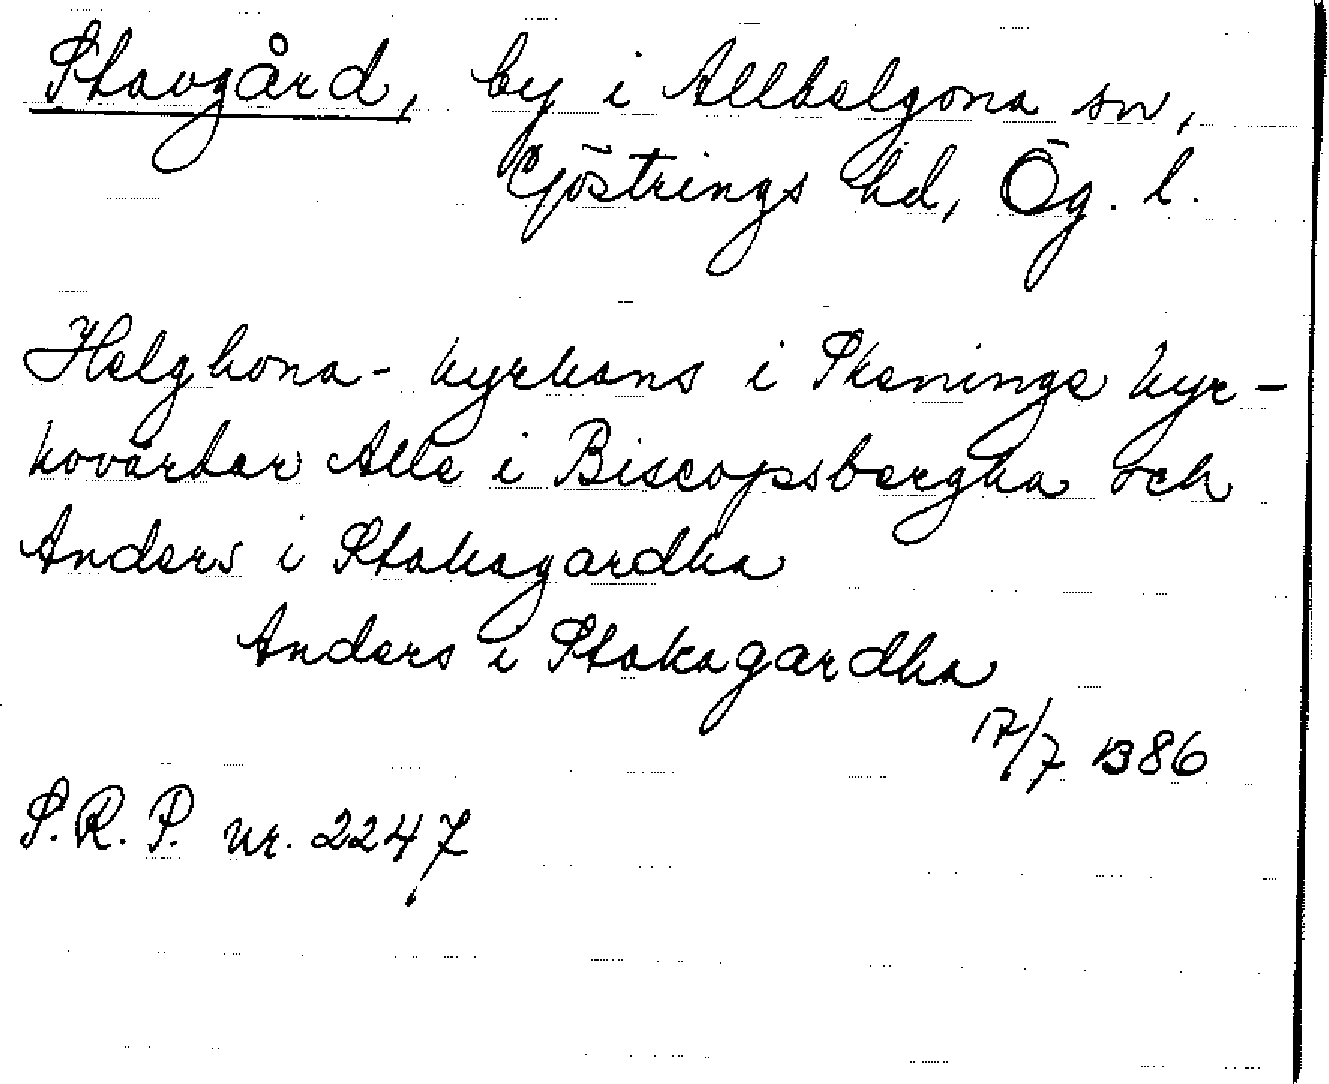 Stavgård, by i Allhelgona sn,
Göstrings hd, Ög. l.
Helghona- kyrkans i Skeninge kyr-
kovärdar Alle i Biscopsbergha och
Anders i Stakagardha
Anders i Stakagardha
17/7 1386
S.R.P. nr. 2247